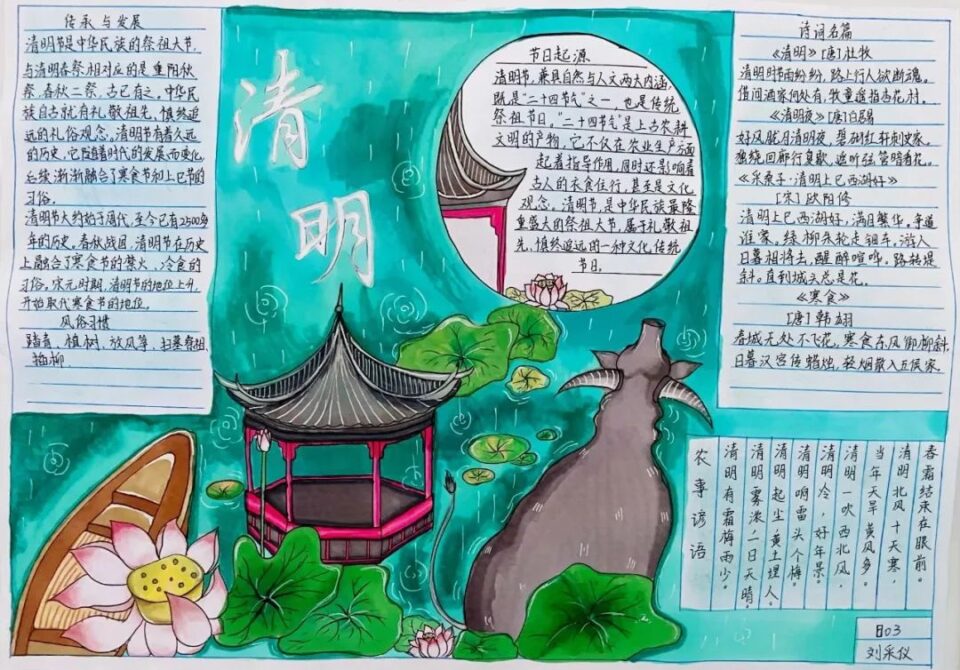 传承与发展
清明节是中华民族的祭祖大节,
与清明春祭相对应的是重阳秋
祭,春秋二祭,古已有之。中华民
族自古就有礼敬祖先,慎终追
远的礼俗观念。清明节有着久远
的历史,它随着时代的发展而变化,
后续渐渐融合了寒食节和上巳节的
习俗。
清明节大约始于周代,至今已有2500多
年的历史。春秋战国,清明节在历史
上融合了寒食节的禁火,冷食的
习俗。宋元时期,清明节的地位上升,
开始取代寒食节的地位。
风俗习惯
踏青、植树、放风筝、扫墓祭祖、
插柳
清明
节日起源
清明节,兼具自然与人文两大内涵,
既是“二十四节气”之一,也是传统
祭祖节日。“二十四节气”是上古农耕
文明的产物,它不仅在农业生产方面
起着指导作用,同时还影响着
古人的衣食住行,甚至是文化
观念。清明节是中华民族最隆
重盛大的祭祖大节,属于礼敬祖
先、慎终追远的一种文化传统
节日。
诗词名篇
《清明》[唐]杜牧
清明时节雨纷纷,路上行人欲断魂。
借问酒家何处有,牧童遥指杏花村。
《清明夜》[唐]白居易
好风胧月清明夜,碧砌红轩刺史家。
独绕回廊行复歇,遥听弦管暗看花。
《采桑子·清明上巳西湖好》
[宋]欧阳修
清明上巳西湖好,满目繁华。争道
谁家。绿柳朱轮走钿车。游人
日暮相将去,醒醉喧哗。路转堤
斜。直到城头总是花。
《寒食》
[唐]韩翃
春城无处不飞花,寒食东风御柳斜。
日暮汉宫传蜡烛,轻烟散入五侯家。
春霜结束在眼前。
清明北风十天寒,
当年天旱黄风多。
清明一吹西北风,
清明冷,好年景。
清明响雷头个梅。
清明起尘黄土埋人。
清明雾浓一日天晴。
清明有霜梅雨少。
农事谚语
803
刘采仪